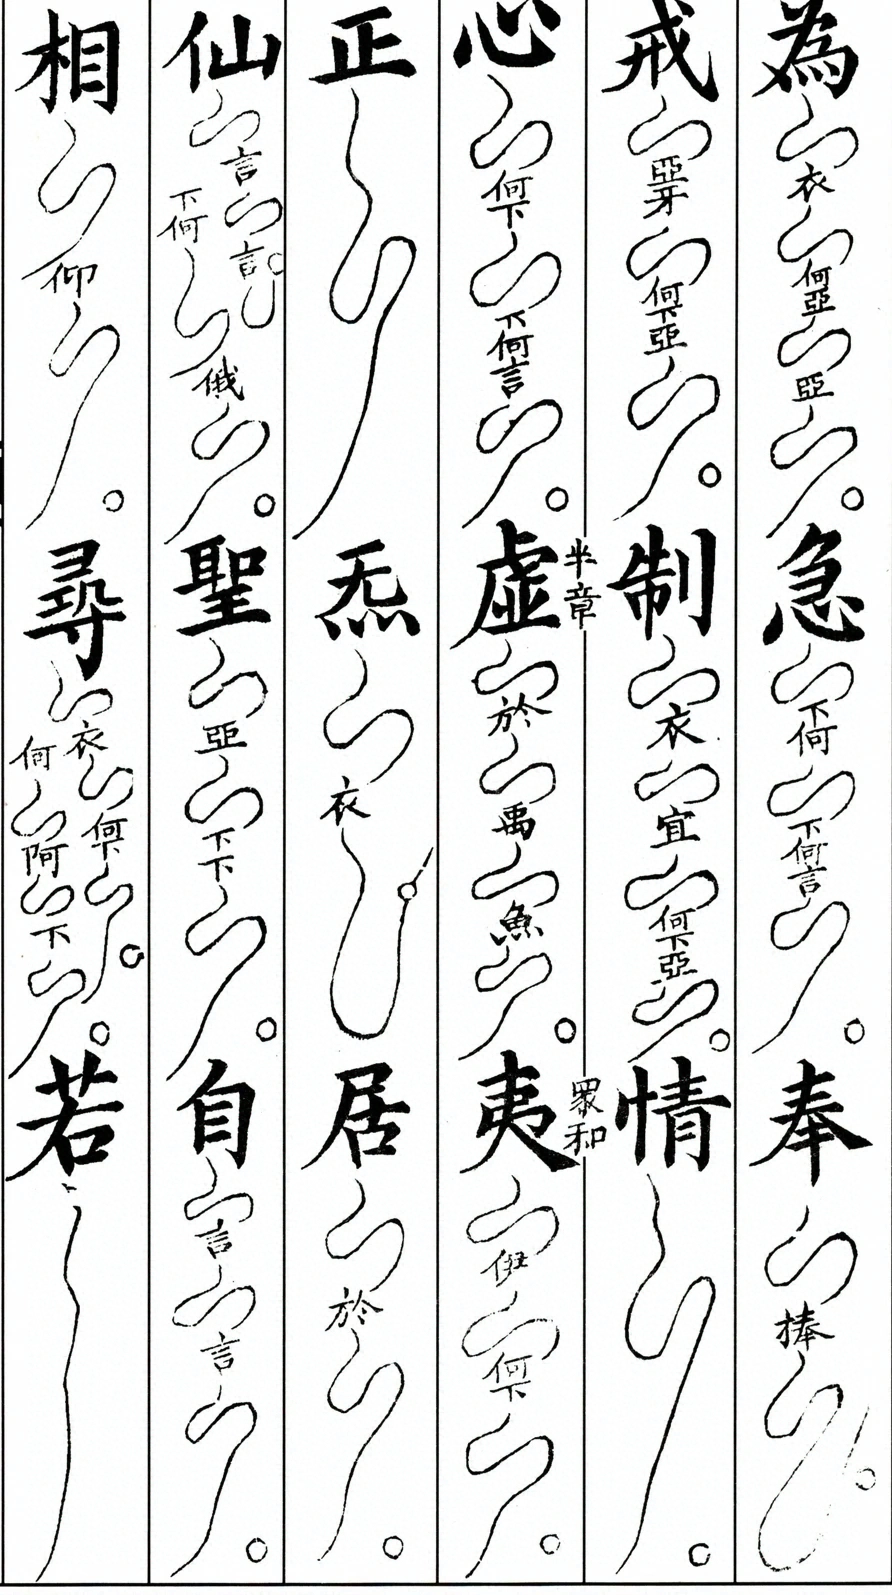 為衣何亞亞急下何下何言奉捧
戒亞牙何下亞制衣宜何下亞情
心何下下何言虛半章於禹魚夷眾和伊何下
正炁衣居於
仙言言下何俄聖亞下下自言言
相仰尋衣何下何阿下若